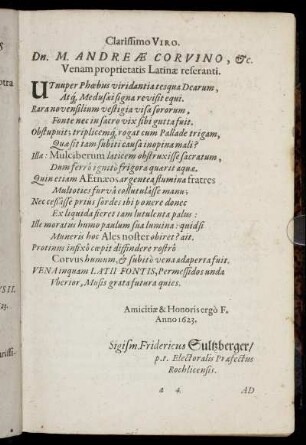 Clarissimo VIRO.
Dn. M. ANDREÆ CORVINO, &c.
Venam proprietatis Latinæ referanti.
UT nuper Phœbus viridantia tesqua Dearum,
Atq́; Medusæi signa revisit equi.
Rara novensilium vestigia visa sororum,
Fonte nec in sacro vix sibi gutta fuit.
Obstupuit, triplicemq́; rogat cum Pallade trigam,
Quæ sit tam subiti causa inopina mali?
Illa: Mulciberum laticem obstruxisse sacratum,
Dum ferrô ignitô frigora quærit aqua.
Quin etiam AEneos, argentea flumina fratres
Multoties furvâ collutulâsse manu;
Nec cessâsse priùs sordes ibi ponere donec
Ex liquida fieret tam lutulenta palus:
Ille moratus humo paulum sua lumina: quid si
Muneris hoc Ales noster obiret? ait.
Protinus infixô cœpit diffindere rostrô
Corvus humum, & subitò vena adaperta fuit.
VENA inquam LATII FONTIS, Permessidos unda
Uberior, Musis grata futura quies.
Amicitiæ & Honoris ergò F.
Anno 1623.
Sigism. Fridericus Sultzberger/
p. t. Electoralis Præfectus
Rochlicensis.
a 4. AD